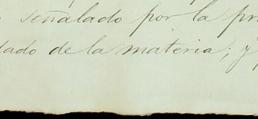 señalado por la pr
lado de la materia; y